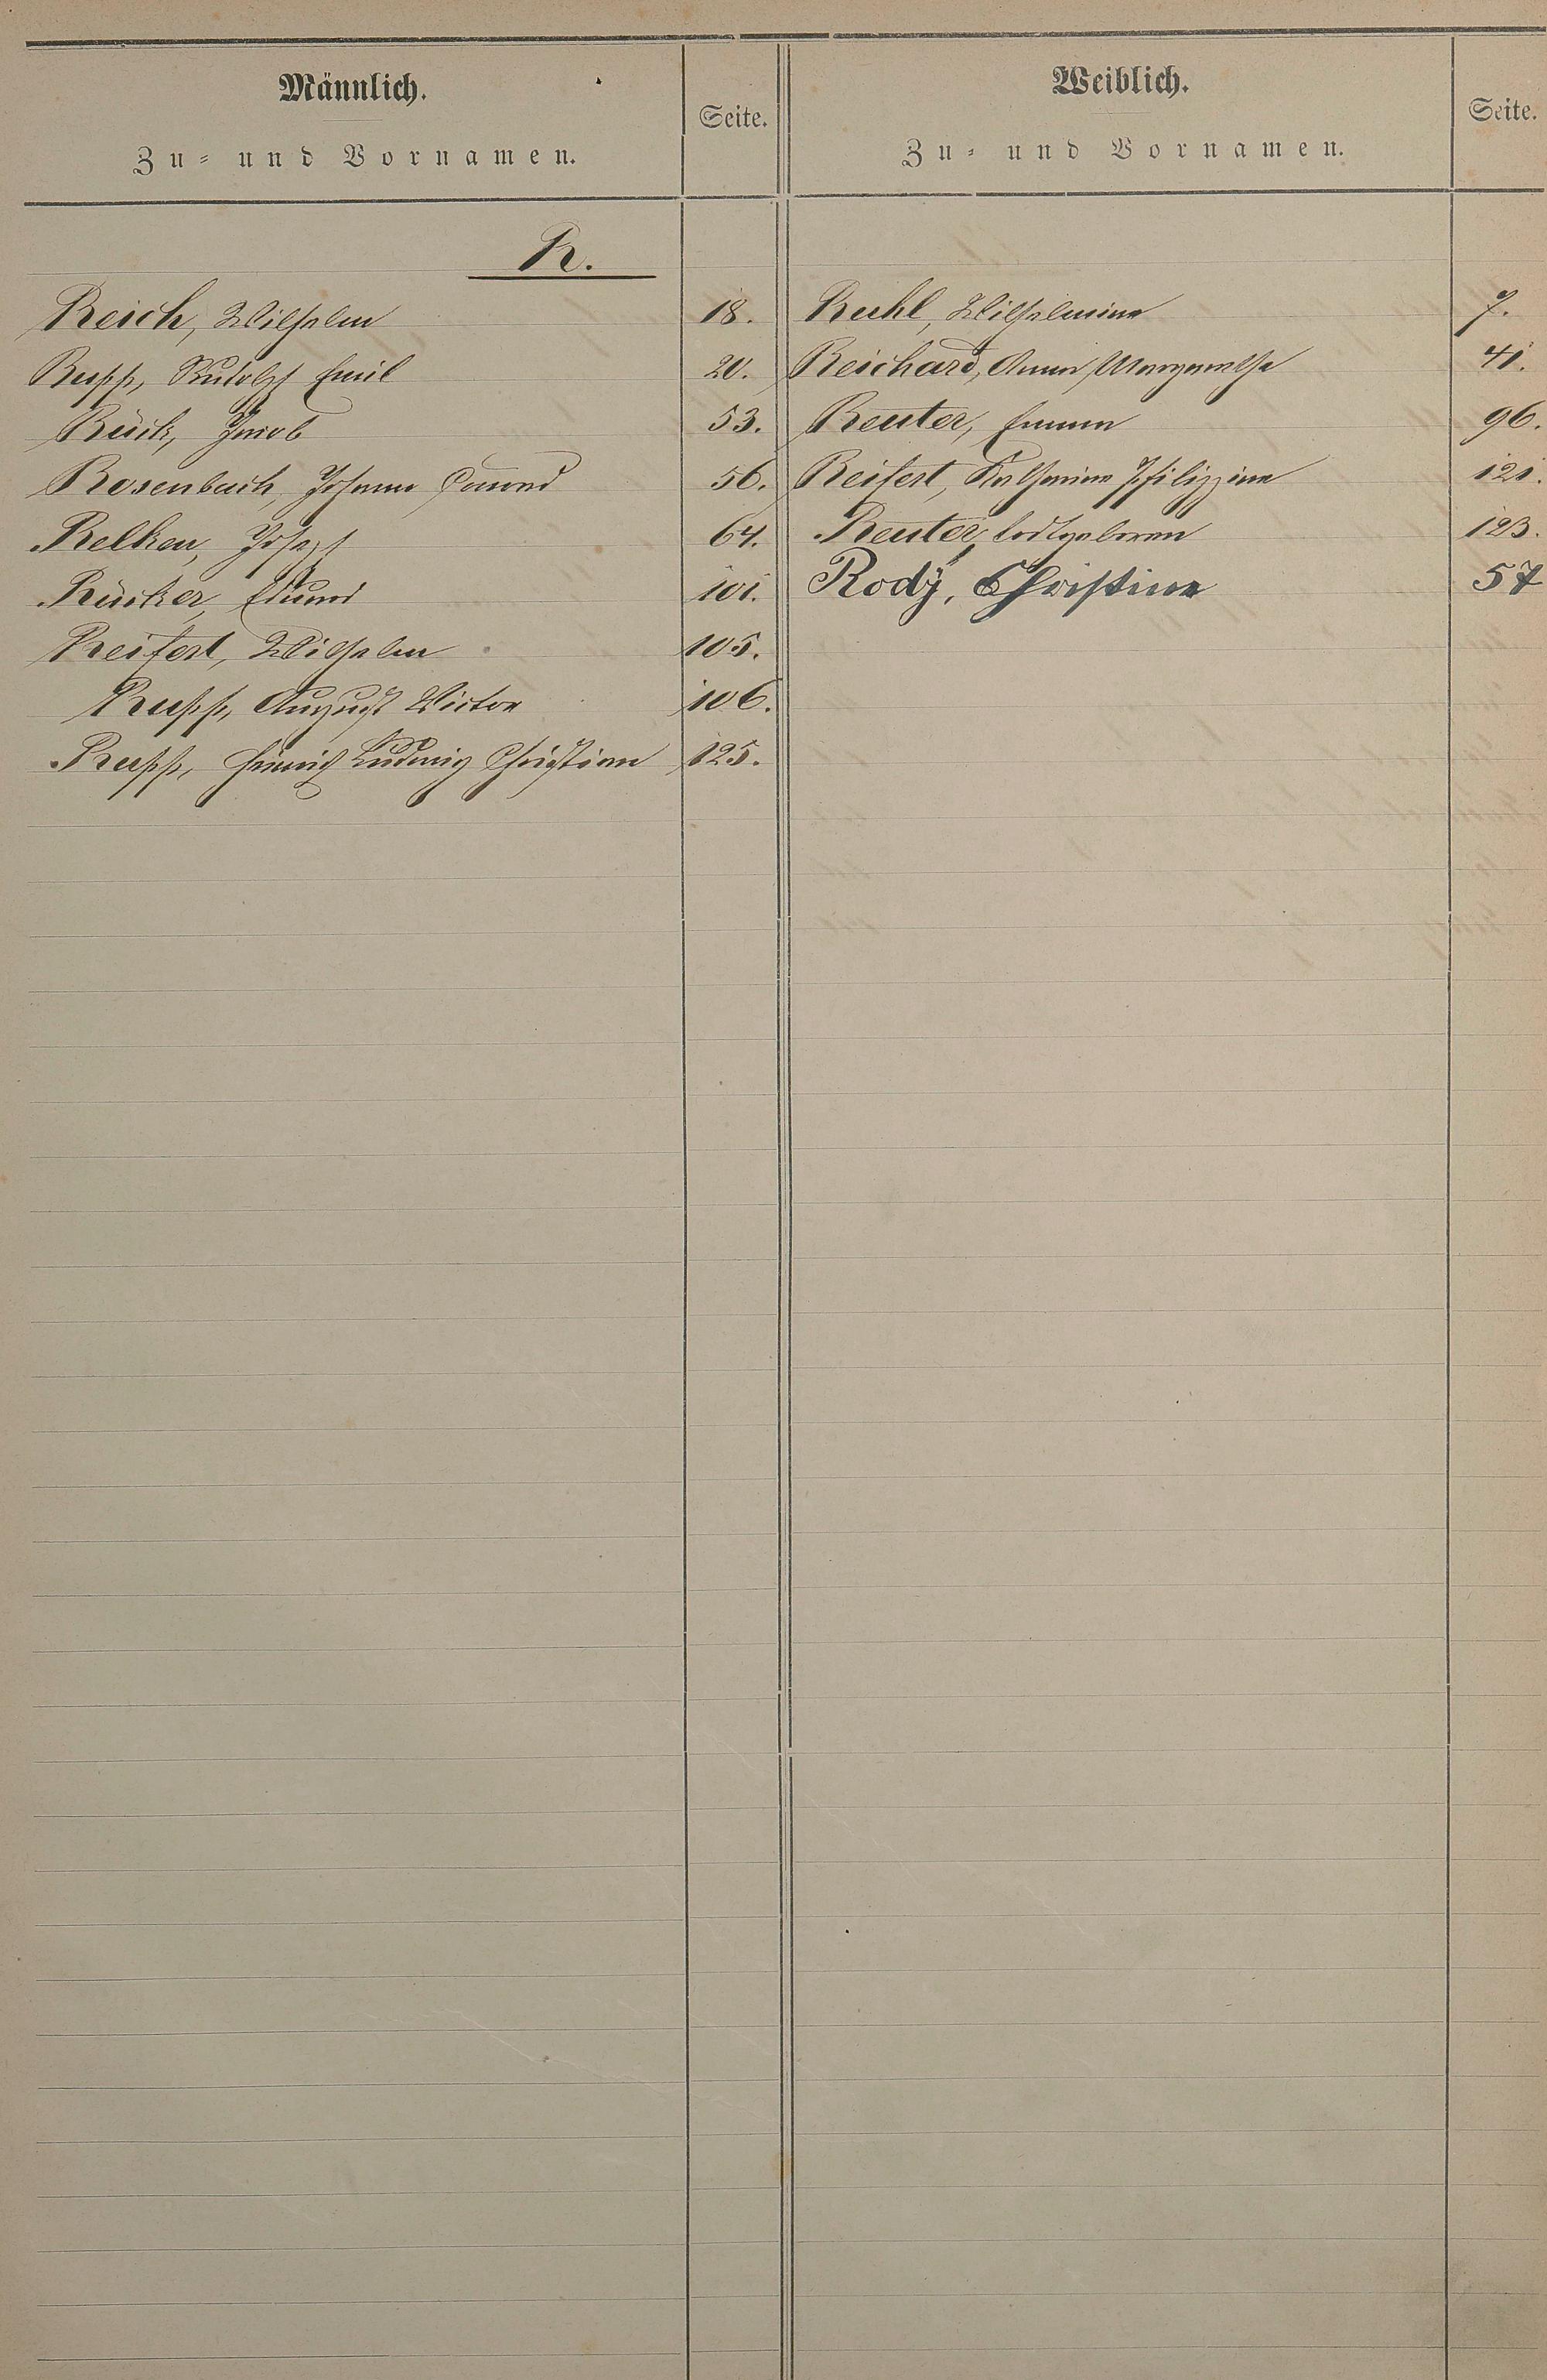 Männlich.
Zu= und Vornamen.
Seite.
Weiblich.
Zu= und Vornamen.
Seite.
R.
Reich, Wilhelm 18.
Rupp, Rudolph Emil 20.
Rück, Jacob 53.
Rosenbach, Johann Conrad 56.
Relken, Joseph 64.
Rücker, Eduard 101.
Reifert, Wilhelm 105.
Rupp, August Victor 106.
Rupp, Heinrich Ludwig Christian 125.
Ruhl, Wilhelmine 7.
Reichard, Anna Margaretha 41.
Reuter, Emma 96.
Reifert, Katharina Philippine 121.
Reuter, todtgeboren 123.
Rody, Christine 57